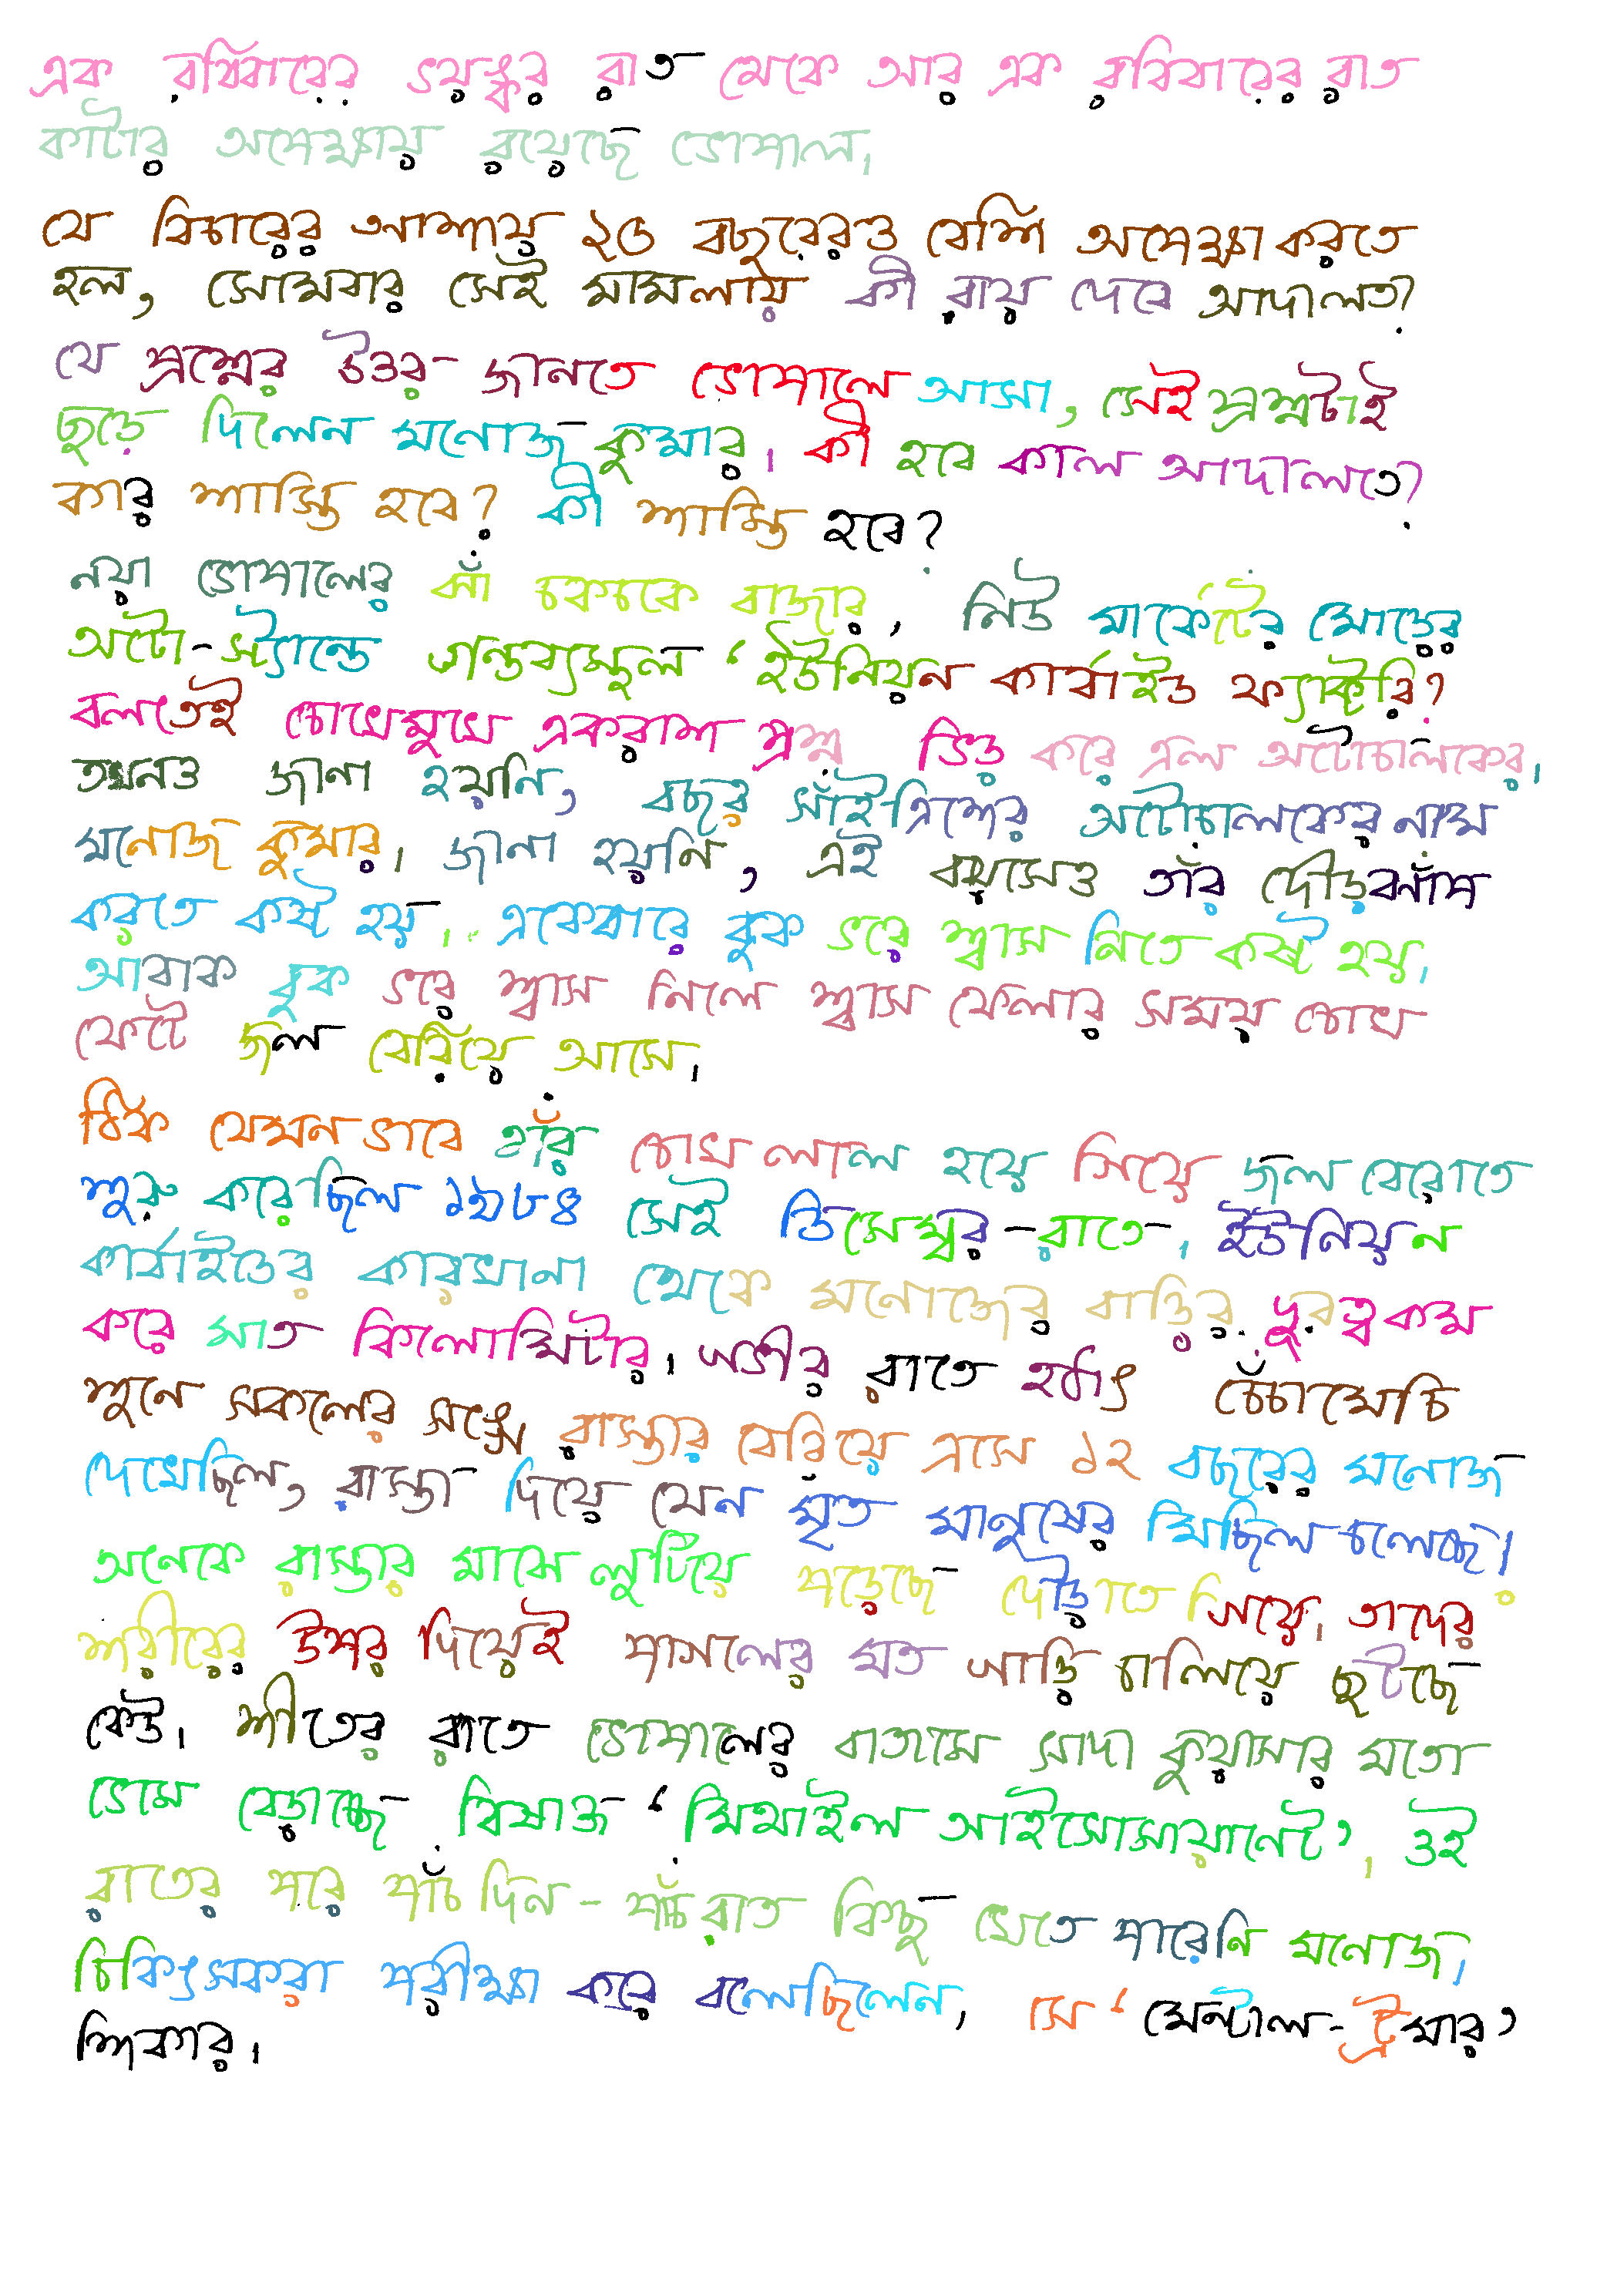 এক রবিবারের ভয়ঙ্কর রাত থেকে আর এক রবিবারের রাত
কাটার অপেক্ষায় রয়েছে ভোপাল।
যে বিচারের আশায় ২৫ বছরেরও বেশি অপেক্ষা করতে
হল, সোমবার সেই মামলায় কী রায় দেবে আদালত?
যে প্রশ্নের উত্তর জানতে ভোপালে আসা, সেই প্রশ্নটাই
ছুড়ে দিলেন মনোজ কুমার। কী হবে কাল আদালতে?
কার শাস্তি হবে? কী শাস্তি হবে?
নয়া ভোপালের ঝাঁ চকচকে বাজার, নিউ মার্কেটের মোড়ের
অটো-স্ট্যান্ডে গন্তব্যস্থল ‘ইউনিয়ন কার্বাইড ফ্যাক্টরি?
বলতেই চোখেমুখে একরাশ প্রশ্ন ভিড় করে এল অটোচালকের।
তখনও জানা হয়নি, বছর সাঁইত্রিশের অটোচালকের নাম
মনোজ কুমার। জানা হয়নি, এই বয়সেও তাঁর দৌড়ঝাঁপ
করতে কষ্ট হয়। একেবারে বুক ভরে শ্বাস নিতে কষ্ট হয়।
আবাক বুক ভরে শ্বাস নিলে শ্বাস ফেলার সময় চোখ
ফেটে জল বেরিয়ে আসে।
ঠিক যেমনভাবে তাঁর চোখ লাল হয়ে গিয়ে জল বেরোতে
শুরু করেছিল ১৯৮৪ সেই ডিসেম্বর-রাতে। ইউনিয়ন
কার্বাইডের কারখানা থেকে মনোজের বাড়ির দূরত্ব কম
করে সাত কিলোমিটার। গভীর রাতে হঠাৎ চেঁচামেচি
শুনে সকলের সঙ্গে রাস্তার বেরিয়ে এসে ১২ বছরের মনোজ
দেখেছিল, রাস্তা দিয়ে যেন মৃত মানুষের মিছিল চলেছে।
অনেকে রাস্তার মাঝে লুটিয়ে পড়েছে দৌড়াতে গিয়ে। তাদের
শরীরের উপর দিয়েই পাগলের মত গাড়ি চালিয়ে ছুটছে
কেউ। শীতের রাতে ভোপালের বাতাসে সাদা কুয়াসার মতো
ভেসে বেড়াচ্ছে বিষাক্ত ‘মিথাইল আইসোসায়ানেট’। ওই
রাতের পরে পাঁচ দিন-পাঁচ রাত কিছু খেতে পারেনি মনোজ।
চিকিৎসকরা পরীক্ষা করে বলেছিলেন, সে ‘মেন্টাল-ট্রমার’
শিকার।